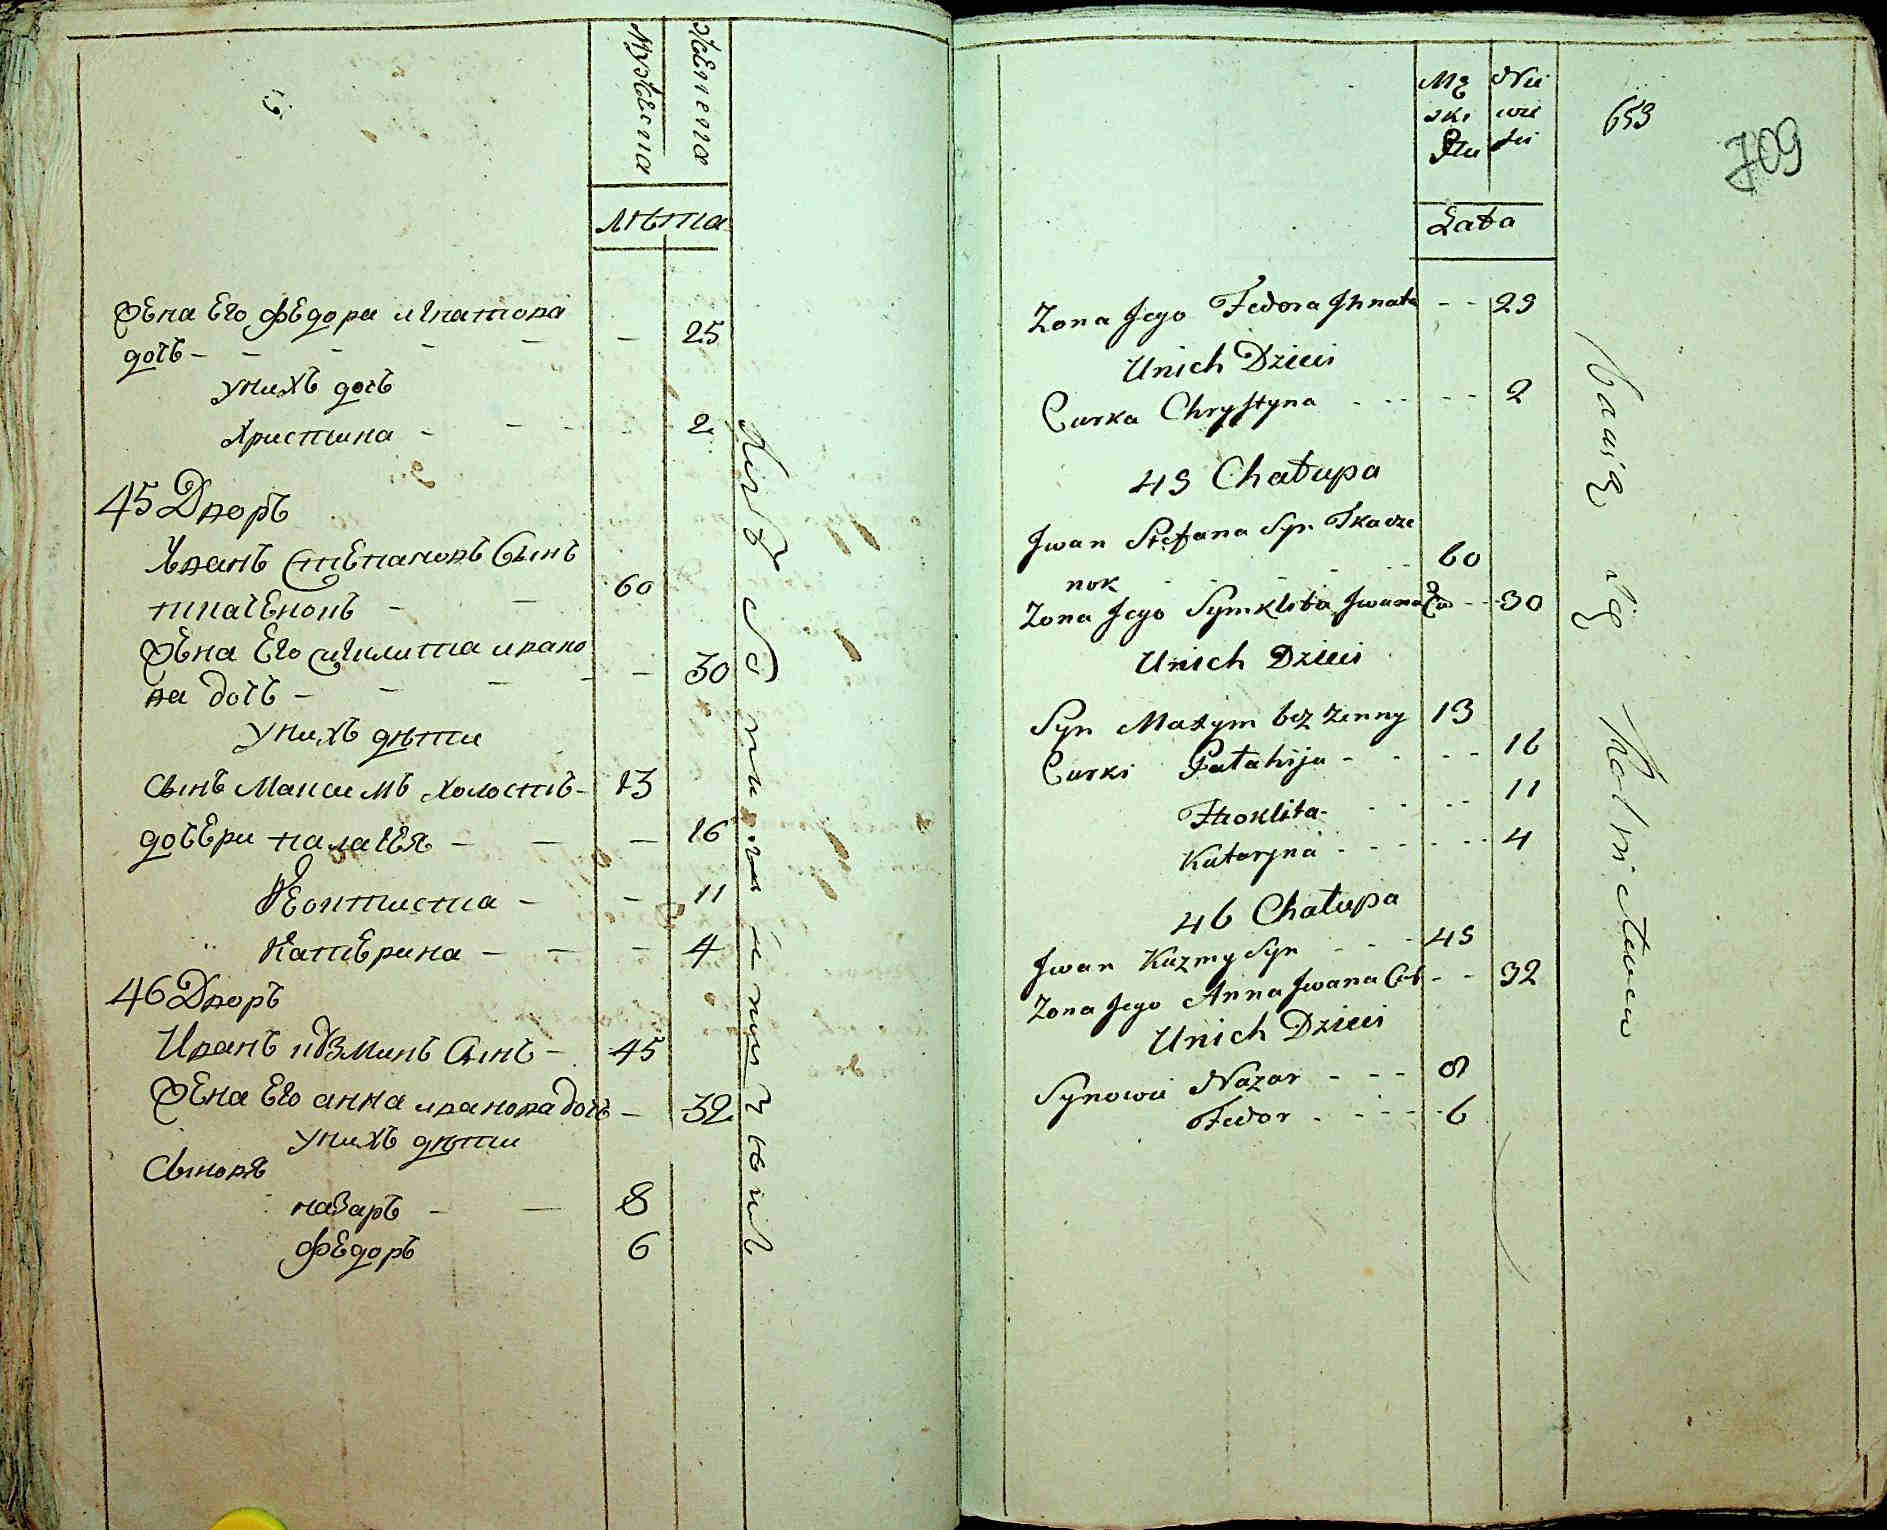 Мужеска
Женска
лѣта
Жена Его федора игнатова
дочь - 25
у нихъ дочь
Христина - 2
45 Дворъ
Иванъ Степановъ Сынъ
ткаченокъ - 60
Жена Его
дочь - 30
у нихъ дѣти
Сынъ Максимъ холостъ - 13
дочери палагея - 16
Феоктиста - 11
Катерина - 4
46 Дворъ
Иванъ кузминъ Сынъ - 45
Жена Его анна иванова дочь - 32
у нихъ дѣти
Сыновя
назаръ - 8
федоръ 6
653
709
Mę Nie
ski wie
Płci ści
Lata
Zona Jego Fedora Jhnata - - 25
U nich Dzieci
Curka Chrystyna - - - 2
45 Chałupa
Jwan Stefana Syn Tkacze
nok - - - 60
Zona Jego Symklita Jwana Co - - 30
U nich Dzieci
Syn Maxym bez zenny 13
Curki Pałahija - - - 16
Fteoklita - - - 11
Kataryna - - - 4
46 Chałupa
Jwan Kuzmy Syn - - - 45
Zona Jego Anna Jwana Cór - - 32
U nich Dzieci
Synowie Nazar - - - 8
Fedor - - - 6